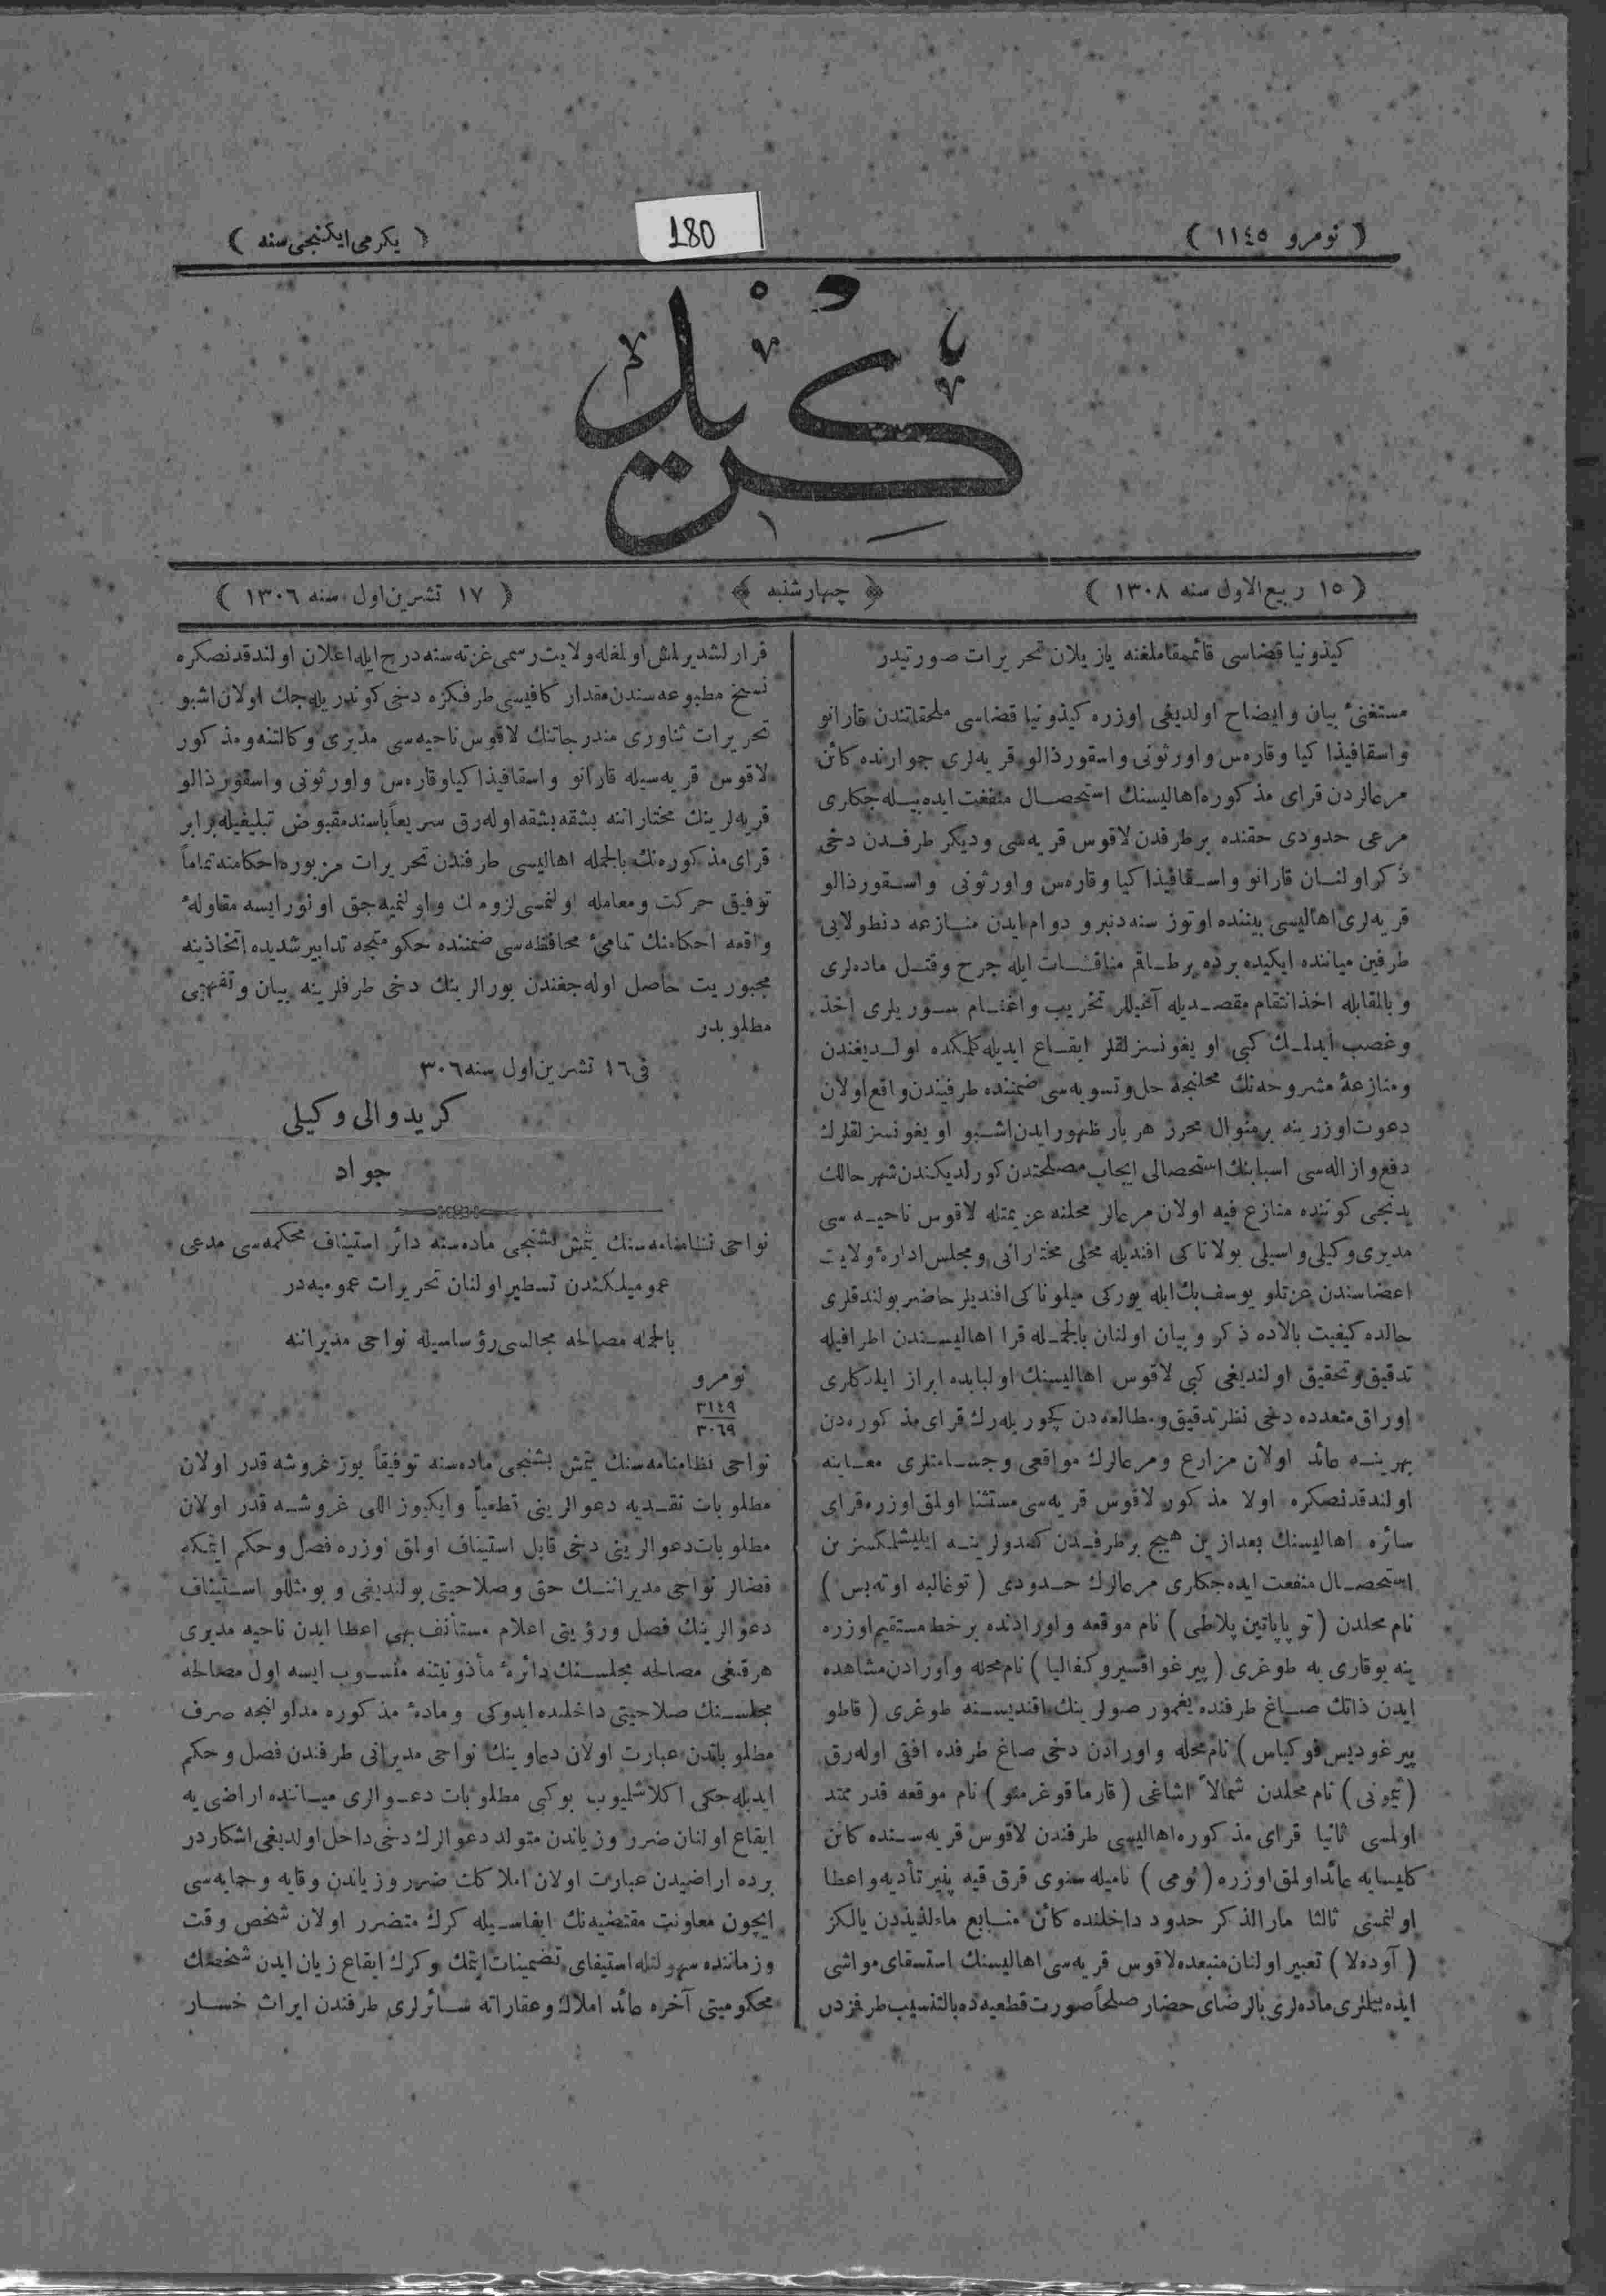 ( نومرو ١١٤٥ )
180
( يكرمی ايكنجی سنه )
كريد
( ١٥ ربيع الاول سنه ١٣٠٨ )
( چهارشنبه )
( ١٧ تشرين اول سنه ١٣٠٦ )
كيذونيا قضاسی قائممقاملغنه يازيلان تحريرات صورتيدر
مستغنیٔ بيان و ايضاح اولديغی اوزره كيذونيا قضاسی ملحقاتندن قارانو
و اسقافيذا كيا و قاره‌س و اورثونی و اسقورذالو قريه‌لری جوارنده كائن
مرعالردن قرای مذكوره اهاليسنك استحصال منفعت ايده بيله‌جكلری
مرعی حدودی حقنده بر طرفدن لاقوس قريه‌سی و ديكر طرفدن دخی
ذكر اولنان قارانو و اسقافيذا كيا و قاره‌س و اورثونی و اسقورذالو
قريه‌لری اهاليسی بيننده اوتوز سنه‌دنبرو دوام ايدن منازعه دنطولايی
طرفين مياننده ايكيده برده برطاقم مناقشات ايله جرح و قتل ماده‌لری
و بالمقابله اخذ انتقام مقصديله آغيللر تخريب و اغنام سوريلری اخذ
و غصب ايدلمك كبی اويغونسزلقلر ايقاع ايديله‌كلمكده اولديغندن
و منازعهٔ مشروحه‌نك محلنجه حل و تسويه‌سی ضمننده طرفيندن واقع اولان
دعوت اوزرينه بر منوال محرر هر بار ظهور ايدن اشبو اويغونسزلقلرك
دفع و ازاله‌سی اسبابنك استحصالی ايجاب مصلحتدن كورلديكندن شهر حالك
يدنجی كوننده منازع فيه اولان مرعالر محلنه عزيمتله لاقوس ناحيه‌سی
مديری وكيلی واسيلی بولاناكی افنديله محلی مختارانی و مجلس ادارهٔ ولايت
اعضاسندن عزتلو يوسف بك ايله يوركی ميلوناكی افنديلر حاضر بولندقلری
حالده كيفيت بالاده ذكر و بيان اولنان بالجمله قرا اهاليسندن اطرافيله
تدقيق و تحقيق اولنديغی كبی لاقوس اهاليسنك اولبابده ابراز ايلدكلری
اوراق متعدده دخی نظر تدقيق و مطالعه‌دن كچوريله‌رك قرای مذكوره‌دن
بهرينه عائد اولان مزارع و مرعالرك مواقعی و جسامتلری معاينه
اولندقدنصكره اولا مذكور لاقوس قريه‌سی مستثنا اولمق اوزره قرای
سائره اهاليسنك بعدازين هيچ بر طرفدن كندولرينه ايليشلمكسزين
استحصال منفعت ايده‌جكلری مرعالرك حدودی ( توغالبه اوته‌بس )
نام محلدن ( تو پاپاتين پلاطی ) نام موقعه و اورادنده بر خط مستقيم اوزره
ينه يوقاری يه طوغری ( پيرغو اقسيرو كفاليا ) نام محله و اورادن مشاهده
ايدن ذاتك صاغ طرفنده يغمور صولرينك اقنديسنه طوغری ( قاطو
پيرغوديس فوكياس ) نام محله و اورادن دخی صاغ طرفده افقی اوله‌رق
( تيمونی ) نام محلدن شمالاً اشاغی ( قارماقوغرمنو ) نام موقعه قدر ممتد
اولمسی ثانيا قرای مذكوره اهاليسی طرفندن لاقوس قريه‌سنده كائن
كليسايه عائد اولمق اوزره ( نومی ) ناميله سنوی قرق قيه پنير تأديه و اعطا
اولنمسی ثالثا مارالذكر حدود داخلنده كائن منابع ماءلذيذدن يالكز
( آوده‌لا ) تعبير اولنان منبعده لاقوس قريه‌سی اهاليسنك استسقای مواشی
ايده بيلملری ماده‌لری بالرضای حضار صلحاً صورت قطعيه‌ده بالتنسيب طرفزدن
قرارلشديرلمش اولمغله ولايت رسمی غزته‌سنه درج ايله اعلان اولندقدنصكره
نسخ مطبوعه‌سندن مقدار كافيسی طرفكزه دخی كوندريله‌جك اولان اشبو
تحريرات ثناوری مندرجاتنك لاقوس ناحيه‌سی مديری وكالتنه و مذكور
لاقوس قريه‌سيله قارانو و اسقافيذا كيا و قاره‌س و اورثونی و اسقورذالو
قريه‌لرينك مختاراننه بشقه بشقه اوله‌رق سريعاً با سند مقبوض تبليغيله برابر
قرای مذكوره‌نك بالجمله اهاليسی طرفندن تحريرات مزبوره احكامنه تماماً
توفيق حركت و معامله اولنمسی لزومك و اولنميه‌جق اونور ايسه مقاولهٔ
واقعه احكامنك تمامیٔ محافظه‌سی ضمننده حكومتجه تدابير شديده اتخاذينه
مجبوريت حاصل اوله‌جغندن بورالرينك دخی طرفلرينه بيان و تفهيمی
مطلوبدر
فی ١٦ تشرين اول سنه ٣٠٦
كريد والی وكيلی
جواد
نواحی نظامنامه‌سنك يتمش بشنجی ماده‌سنه دائر استيناف محكمه‌سی مدعی
عموميلكندن تسطير اولنان تحريرات عموميه‌در
بالجمله مصالحه مجالسی رؤساسيله نواحی مديراننه
نومرو
٣١٤٩
٣٠٦٩
نواحی نظامنامه‌سنك يتمش بشنجی ماده‌سنه توفيقاً يوز غروشه قدر اولان
مطلوبات نقديه دعوالرينی قطعياً و ايكيوز اللی غروشه قدر اولان
مطلوبات دعوالرينی دخی قابل استيناف اولمق اوزره فصل و حكم ايتمكه
قضالر نواحی مديراننك حق و صلاحيتی بولنديغی و بو مثللو استيناف
دعوالرينك فصل و رؤيتی اعلام مستأنف بهی اعطا ايدن ناحيه مديری
هرقنغی مصالحه مجلسنك دائرهٔ مأذونيتنه منسوب ايسه اول مصالحه
مجلسنك صلاحيتی داخلنده ايدوكی و مادهٔ مذكوره مدلولنجه صرف
مطلوباتدن عبارت اولان دعاوينك نواحی مديرانی طرفندن فصل و حكم
ايديله‌جكی اكلاشليوب بوكبی مطلوبات دعوالری مياننده اراضی يه
ايقاع اولنان ضرر و زياندن متولد دعوالرك دخی داخل اولديغی اشكاردر
برده اراضيدن عبارت اولان املاكك ضرر و زياندن وقايه و حمايه‌سی
ايچون معاونت مقتضيه‌نك ايفاسيله كرك متضرر اولان شخص وقت
و زماننده سهولتله استيفای تضمينات ايتمك و كرك ايقاع زيان ايدن شخصك
محكوميتی آخره عائد املاك و عقاراته سائرلری طرفندن ايراث خسار